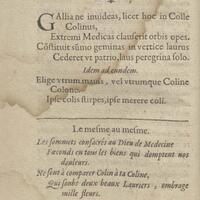 GAllia ne inuideas, licet hoc in Colle
Colinus,
Extremi Medicas clauserit orbis opes.
Cōstituit sūmo geminas in vertice laurus
Cederet vt patrio, laus peregrina solo.
Idem ad eundem.
Elige vtrum mauis, vel vtrumque Coline
Colono.
Ipse colis stirpes, ipse merere coli.
Le mesme au mesme.
Les sommets consacrés au Dieu de Medecine
Fæconds en tous les biens qui domptent nos
douleurs.
Ne sont à comparer Colin à ta Coline,
Qui soubs deux beaux Lauriers, ombrage
mille fleurs.